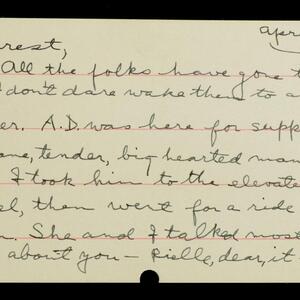 apr
rest,
All the folks have gone t
don't dare wake them to a
er. A.D. was here for supp
ane, tender, big hearted man
I took him to the elevate
el, then went for a ride
n. She and I talked most
about you — Rielle, dear, it